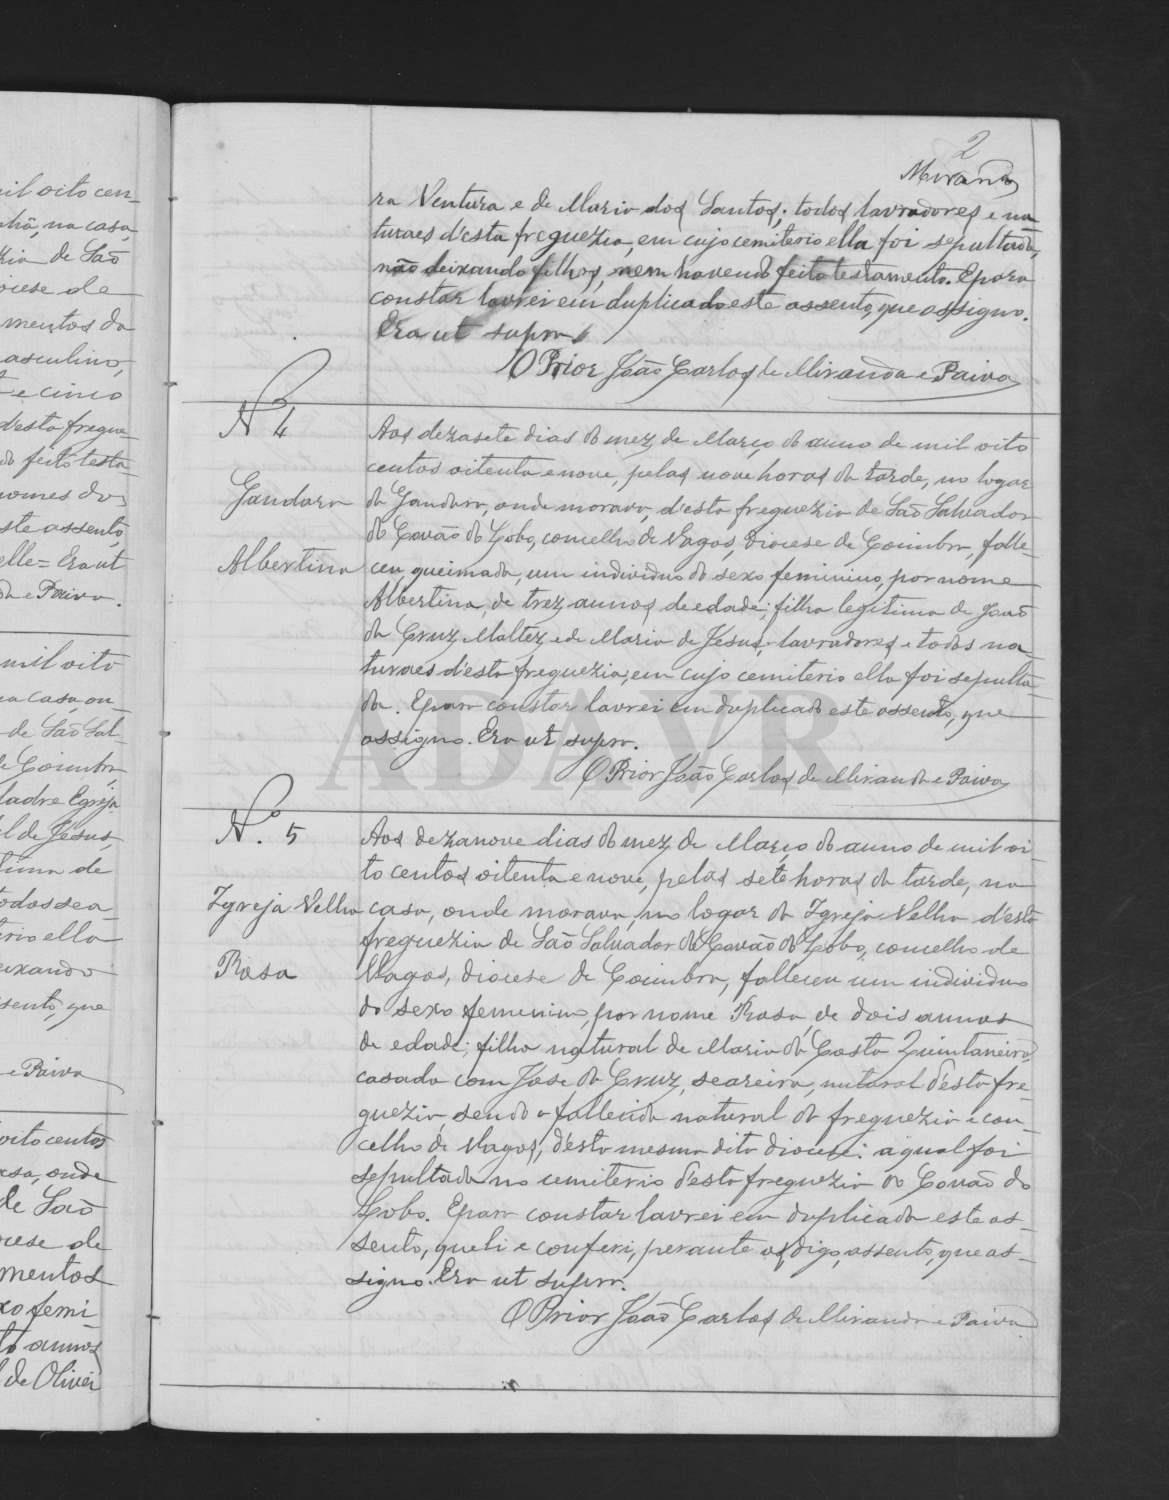 il oito cen-
nhã, na casa
zia de São
ocese de
mentos da
asculino,
t e cinco
d'esta fregue-
do feito testa-
nomes do
ste assento,
elle = Era ut
da e Paiva.
mil oito
na casa, on-
de São Sal-
de Coimbra
Madre Egreja
l de Jesus,
tima de
todos sea-
terio ella
eixando
sento, que
e Paiva
oito centos
asa, onde
de São
ocese de
mentos
xo femi-
to annos
l de Olivei-
2
Miranda
ra Ventura e de Maria dos Santos; todos lavradores e na-
turaes d'esta freguezia, em cujo cemiterio ella foi sepultada,
não deixando filhos, nem havendo feito testamento. E para
constar lavrei em duplicado este assento, que assigno.
Era ut supra.
O Prior João Carlos de Miranda e Paiva
Nº 4
Gandara
Albertina
Aos dezasete dias do mez de Março do anno de mil oito
centos oitenta e nove, pelas nove horas da tarde, no logar
da Gandara, onde morava, d'esta freguezia de São Salvador
do Covão do Lobo, concelho de Vagos, Diocese de Coimbra, falle-
ceu, queimada, um individuo do sexo feminino, por nome
Albertina, de trez annos de edade; filha legitima de João
da Cruz Maltez e de Maria de Jesus, lavradores e todos na-
turaes d'esta freguezia, em cujo cemiterio ella foi sepulta-
da. E para constar lavrei em duplicado este assento, que
assigno. Era ut supra.
O Prior João Carlos de Miranda e Paiva
ADAVR
Nº. 5
Igreja Velha
Rosa
Aos dezanove dias do mez de Março do anno de mil oi-
to centos oitenta e nove, pelas sete horas da tarde, na
casa, onde morava, no logar da Igreja Velha d'esta
freguezia de São Salvador do Covão do Lobo, concelho de
Vagos, diocese de Coimbra, falleceu um individuo
do sexo feminino, por nome Rosa, de dois annos
de edade; filha natural de Maria da Costa Quintaneira,
casada com José da Cruz, seareira, natural d'esta fre-
guezia, sendo a fallecida natural da freguezia e con-
celho de Vagos, d'esta mesma dita diocese: a qual foi
sepultada no cemiterio d'esta freguezia do Covão do
Lobo. E para constar lavrei em duplicado este as-
sento, que li e conferi, perante as, digo, assento, que as-
signo. Era ut supra.
O Prior João Carlos de Miranda e Paiva